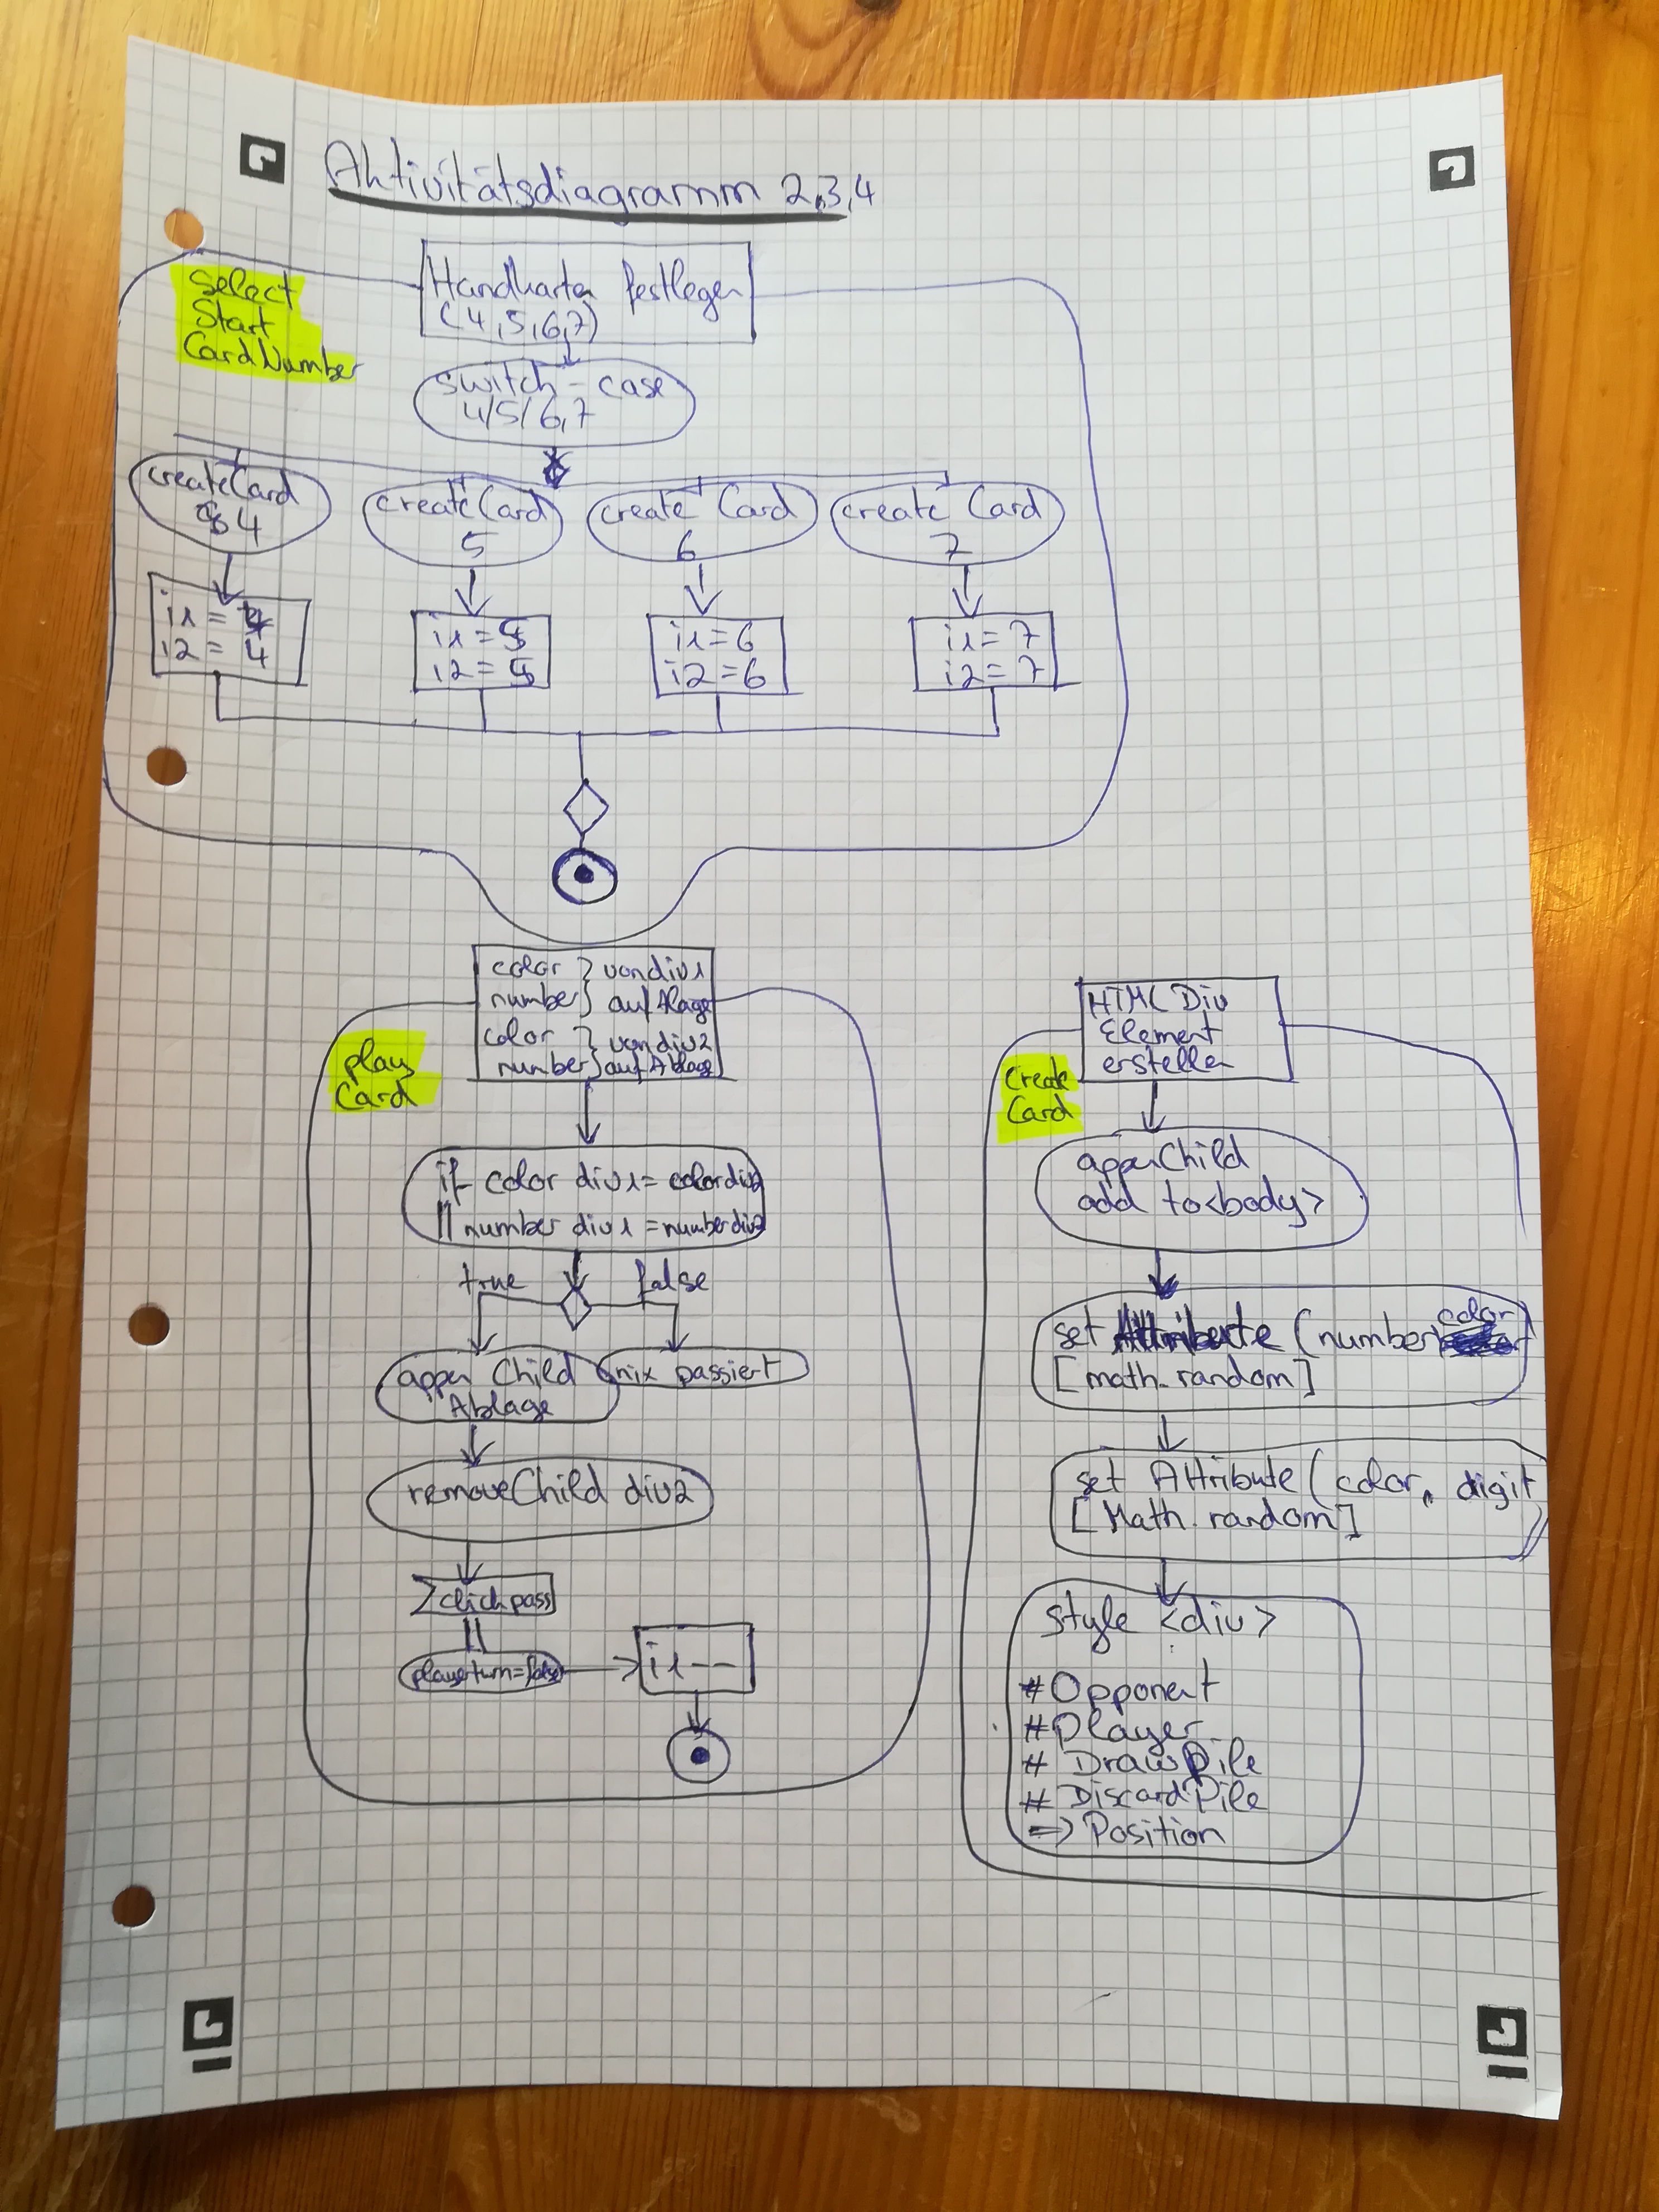 Aktivitätsdiagramm 2,3,4
Select
Start
CardNumber
Handkarten festlegen
(4,5,6,7)
switch-case
4/5/6,7
createCard
4
createCard
5
create Card
6
create Card
7
i1 = 4
i2 = 4
i1 = 5
i2 = 5
i1 = 6
i2 = 6
i1 = 7
i2 = 7
play
Card
color } von div1
number } auf Alage
color } von div2
number } auf Ablage
if color div1 = color div2
|| number div1 = number div2
true
false
appen Child
Ablage
nix passiert
removeChild div2
click pass
playerturn=false
i1--
Create
Card
HTML Div
Element
erstellen
appenChild
add to <body>
set Attribute (number color
[math.random]
set Attribute (color, digit
[Math.random]
style <div>
#Opponent
#Player
# DrawPile
# DiscardPile
=> Position